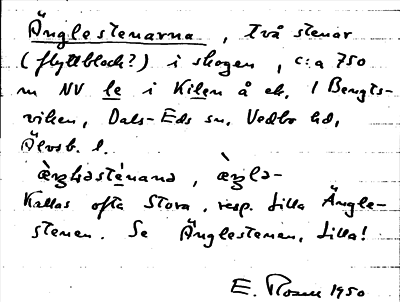 Änglestenarna, två stenar
(flyttblock?) i skogen, c:a 750
m NV le i Kilen å ek. 1 Bengts-
viken, Dals-Eds sn, Vedbo hd,
Älvsb. l.
Kallas ofta Stora, resp. Lilla Ängle-
stenen. Se Änglestenen, Lilla!
E. Rosell 1950